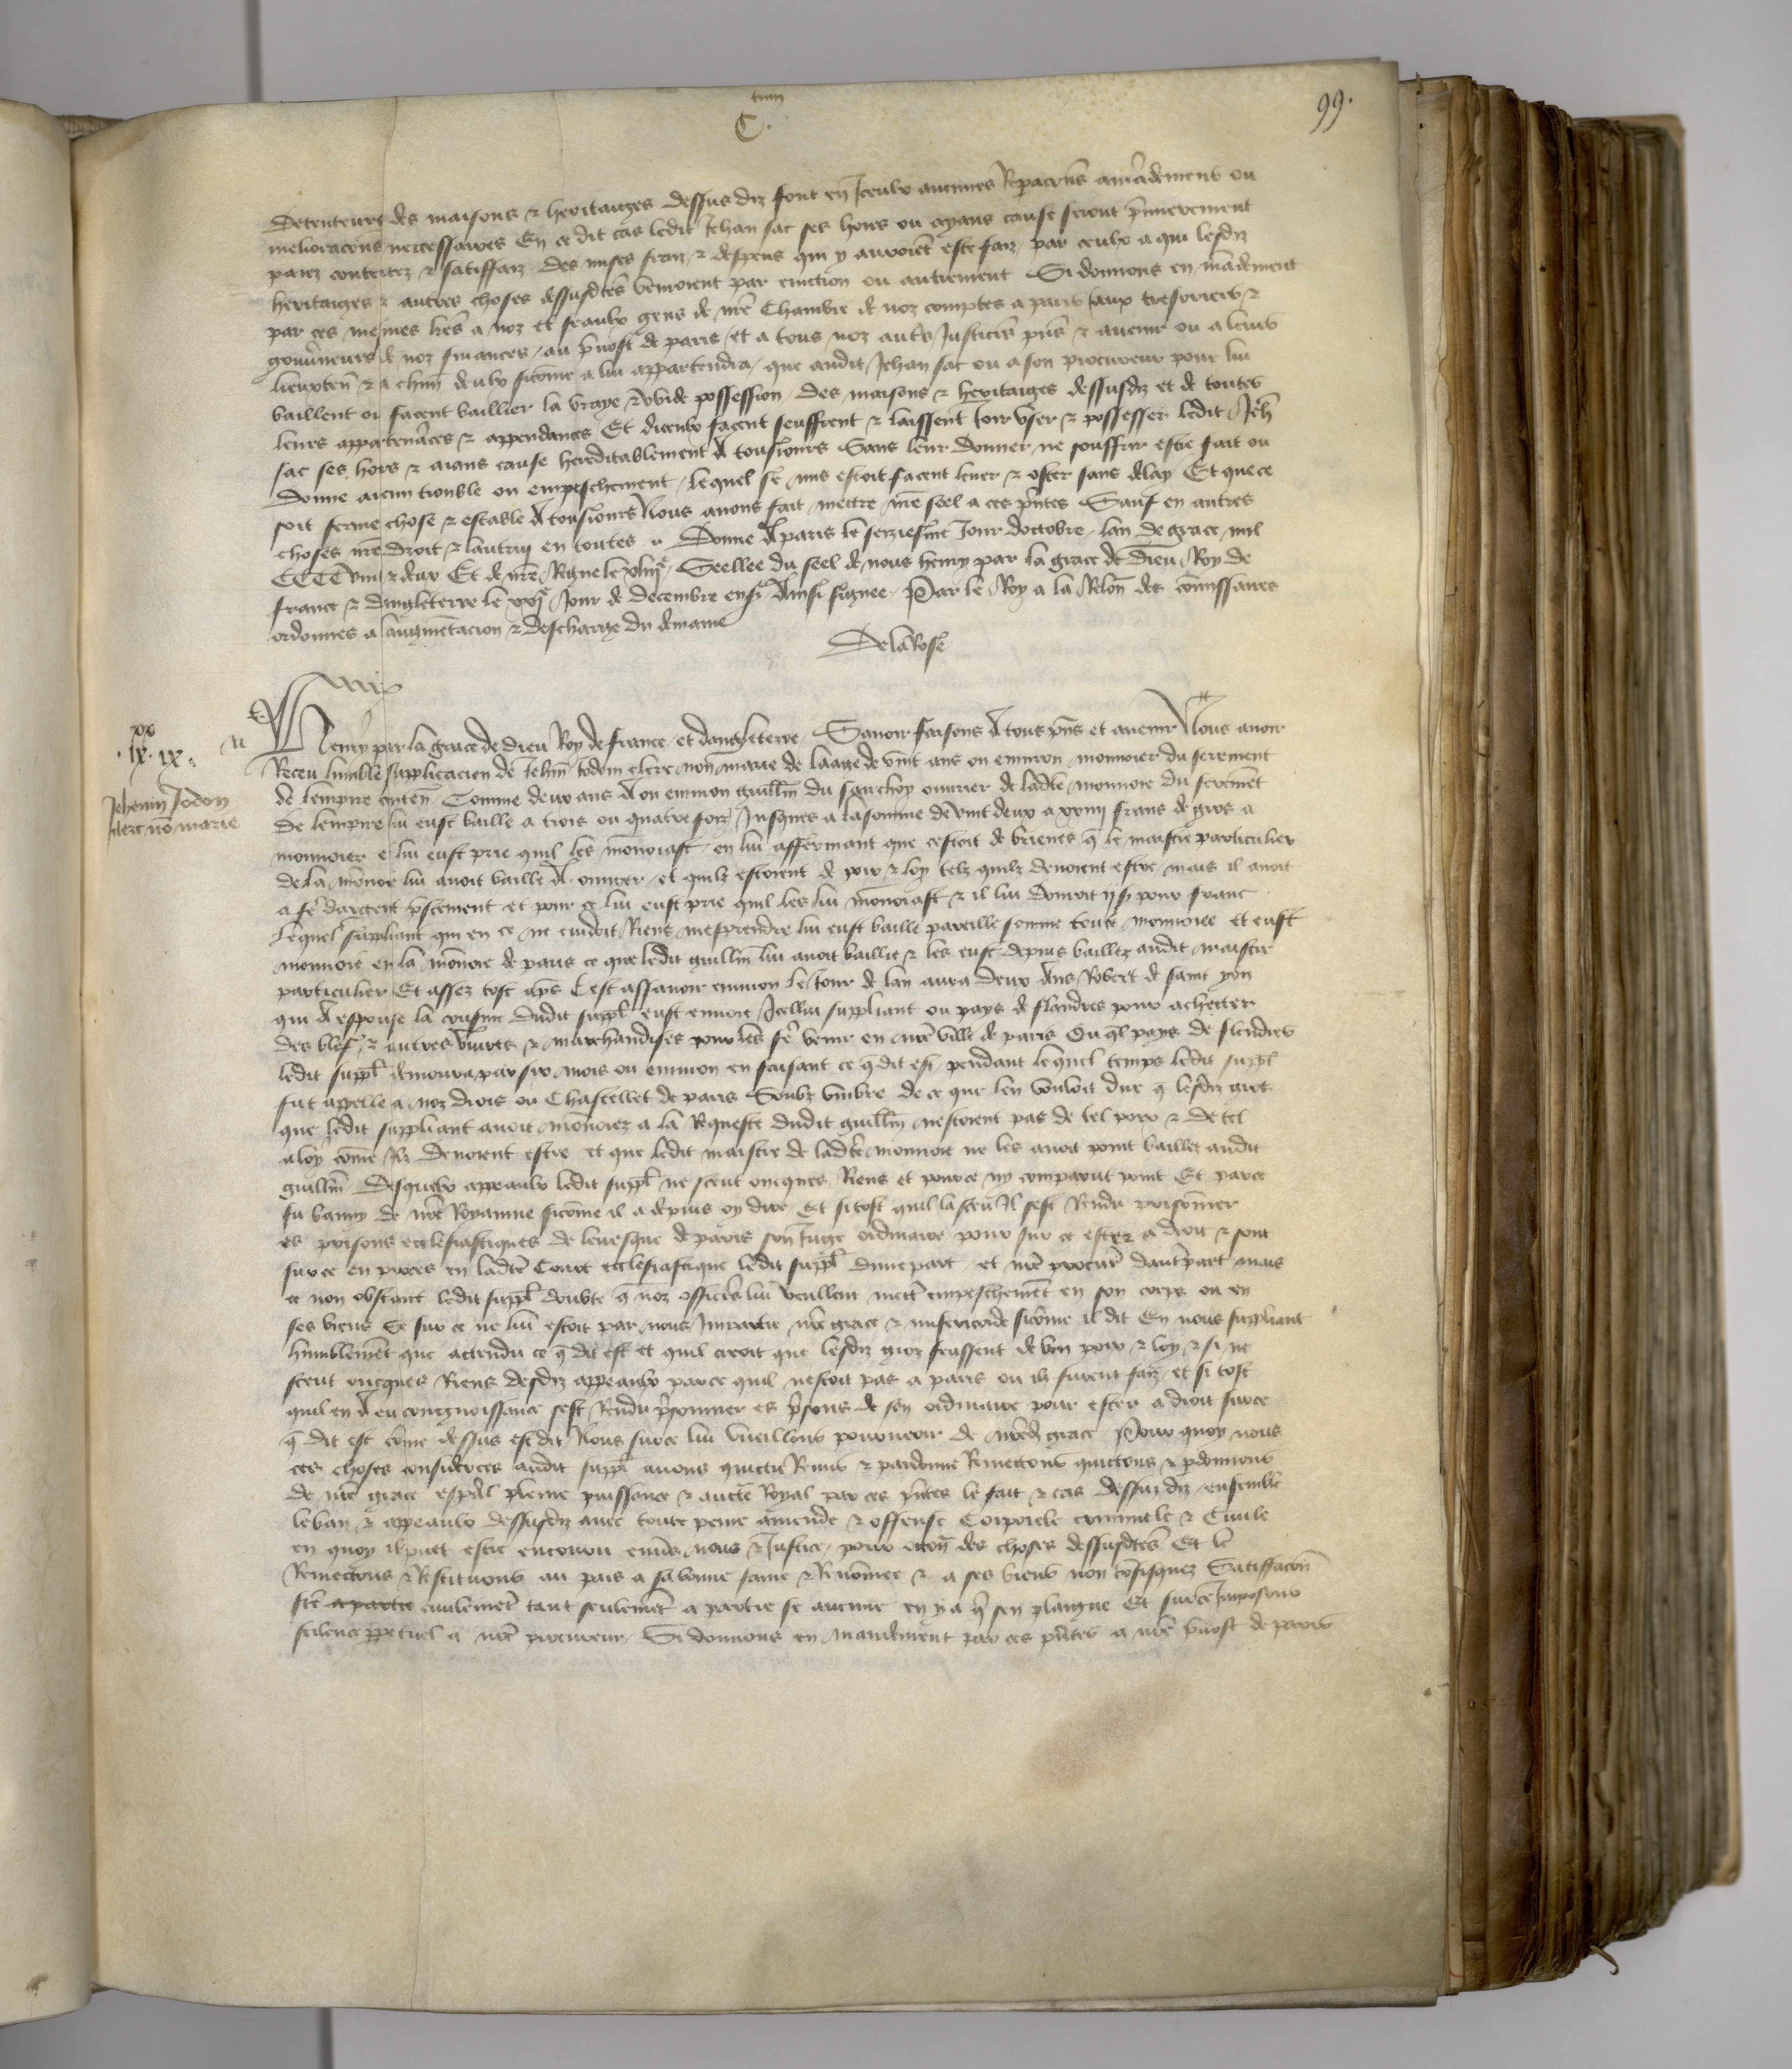 tum
C.
99.
Detenteurs des maisons & heritaiges dessus diz font en Iceulx aucunes Repacions amendemens ou
melioracions neccessaires En ce dit cas ledit Jehan sac ses hoirs ou ayans cause seront p'mierement
paiez contentez & satiffaiz des mises fraiz & despens qui y auroient este faiz par ceulx a qui lesdiz
heritaiges & autres choses dessusdtes vendroient par euiction ou autrement Si donnons en mãdement
par ces mesmes lres a noz et feaulx gens de nrẽ Chambre de noz comptes a paris aux tresoriers &
gouu'neurs de noz finances / au p'uost de paris / et a tous noz aut's Justicis pñs & auenir ou a leurs
lieuxteñ & a chũn deulx sicõme a lui appartendra / que audit Jehan sac ou a son procureur pour lui
baillent ou facent baillier la vraye & vuide possession des maisons & heritaiges dessusdiz et de toutes
leurs appartenãces & appendances Et diceulx facent seuffrent & laissent Joir vser & possesser ledit Jeh̃
sac ses hoirs & aians cause hereditablement A tousiours Sans leur donner ne souffrir estre fait ou
donne aucun trouble ou empeschement / lequel se mis estoit facent leuer & oster sans delay Et que ce
soit ferme chose & estable A tousiours Nous auons fait mettre nrẽ seel a ces p'ntes Sauf en autres
choses nrẽ droit & lautruy en toutes // Donne A paris le seziesme Jour doctobre / lan de grace mil
CCCC vint & deux Et de nrẽ Regne le / Seellee du seel de nous henry par la grace de Dieu Roy de
france & dangleterre le Jour de decembre Ainsi signee / Par le Roy a la Relõn des cõmissaires
ordonnes a laugmẽtacion & descharge du demaine
DelaRose
Henry par la grace de Dieu Roy de france et dangleterre / Sauoir faisons A tous pñs et auenir Nous auoir
Receu lumble supplicacion de Jehãn Jodoin clerc non marie de laage de vint ans ou enuiron monnoier du serement
de lempire conteñ / Comme deux ans A ou enuiron guillm̃ du sanchoy ouurier de ladte monnoie du seremẽt
de lempire lui eust baille a trois ou quatre foiz Jusques a la somme de vint deux a xxiiij frans de gros a
monnoier & lui eust prie quil les mõnoiast / en lui affermant que cestoit de brieues q̃ le maistre particulier
de la mõnoie lui auoit baille A ouurer / et quilz estoient de pois & loy telz quilz deuoient estre / mais il auoit
a fe' dargent p'stement et pour ce lui eust prie quil les lui mõnoiast & il lui donroit ij s̃ pour franc
Lequel suppliant qui en ce ne cuidoit Riens mesprendre lui eust baille pareille somme toute monnoiee et eust
monnoie en la mõnoie de paris ce que ledit guillm̃ lui auoit baillie & les eust depuis baillez audit maistre
particulier Et assez tost aps Cest assauoir enuiron le Jour de lan aura deux Ans Robert de saint yon
qui A espouse la cousine dudit suppl' eust enuoie Icellui suppliant ou pays de flandres pour achetter
des blefz & autres viures & marchandises pour les fe' venir en nrẽ ville de paris Ou q̃l pays de flandres
ledit suppl' demoura par six mois ou enuiron en faisant ce q̃ dit est / pendant lequel temps ledit suppl'
fut appelle a noz drois ou Chastellet de paris Soubz vmbre de ce que len vouloit dire q̃ lesdiz gros
que ledit suppliant auoit mõnoiez a la Requeste dudit guillm̃ nestoient pas de tel pois & de tel
aloy cõme Ilz deuoient estre et que ledit maistre de ladte monnoie ne les auoit point baillez audit
guillm̃ Desquelx appeaulx ledit suppl' ne sceut oncques Riens et pource ny comparut point Et parce
fu banny de nrẽ Royaume sicõme il a depuis oy dire Et si tost quil la sceu Il sest Rendu prisonnier
es prisons ecclesiastiques de leuesque de paris son Juge ordinaire pour sur ce ester a droit & sont
sur ce en proces en ladte Court ecclesiastique ledit suppl' dune part / et nrẽ procur' dautr'part mais
ce non obstant ledit suppl' doubte q̃ noz officers lui veullent mett' empeschemẽt en son corps ou en
ses biens Se sur ce ne lui estoit par nous Impartie nrẽ grace & misericorde sicõme il dit En nous suppliant
humblemẽt que actendu ce q̃ dit est et quil creoit que lesdiz gros feussent de bon pois & loy & si ne
sceut oncques Riens desdiz appeaulx parce quil nestoit pas a paris ou ilz furent faiz et si tost
quil en A eu congnoissance sest Rendu p'sonnier es p'sons de son ordinaire pour ester a droit sur ce
q̃ dit est cõme dessus est dit Nous sur ce lui vueillons pourueoir de nrẽd grace Pour quoy nous
ces choses considerees audit suppl' auons quictie Remis & pardonne Remettons quictons & p'donnons
de nrẽ grace esp'al pleine puissance & aucte Royal par ces p'ntes le fait & cas dessus diz ensemble
le ban & appeaulx dessusdiz auec toute peine amende & offense Corporele criminele & Ciuile
en quoy il puet estre encouru enu's nous & Justice / pour occõn des choses dessusdtes Et le
Remettons & Restituons au pais a sa bonne fame & Renõmee & a ses biens non cõfisquez Satisfacõn
fte a partie ciuilemẽt tant seulemẽt a partie se aucune en y a q̃ sen plaigne Et sur ce Imposons
scilence ppetuel a nrẽ procureur / Si donnons en mandement par ces p'ntes a nrẽ p'uost de paris
xx
. ix. ix .
Jehenin Jodoin
clerc nõ marie